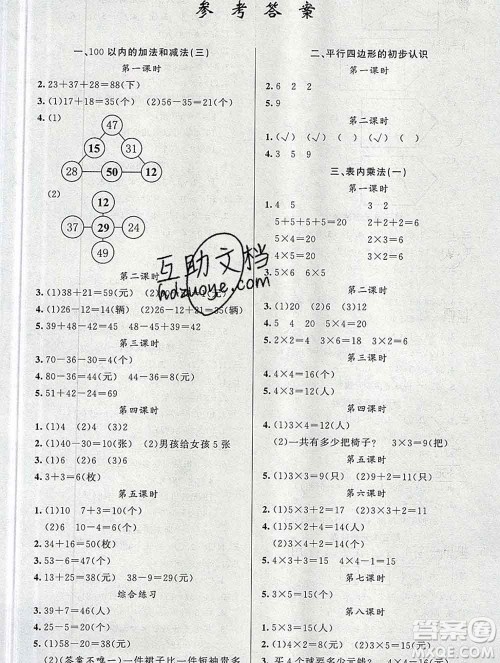 参考答案
一、100以内的加法和减法(三)
第一课时
2. 23+37+28=88(下)
3. (1)17+18=35(个) (2)56-35=21(个)
4. (1)
47
15 31
28 50 12
(2)
12
37 29 24
49
第二课时
3. (1)38+21=59(元)
4. (1)26-12=14(辆) (2)26+12-3=35(辆)
5. 39+48-42=45 48-45+39=42
第三课时
3. 70-36-30=4(个)
4. 80-36=44(元) 44-36=8(元)
5. 51+42-24=69
第四课时
1. (1)4 (2)3 (3)2
2. (1)50-40=10(张) (2)男孩给女孩5张
3. (1)6 (2)3 (3)2
第五课时
1. (1)10 7+3=10(个)
(2)6 30-24=6(个)
2. 34+16=50(枚)
4. 13+25=38(元) 38-9=29(元)
综合练习
3. (1)58-20=38(元)
二、平行四边形的初步认识
第一课时
2. 6 2 2
5. 9
第二课时
1. (√) (√) ( ) (√)
4. 3 5 9
三、表内乘法(一)
第一课时
1. 4 5 3 2
5+5+5+5=20 2+2+2=6
5×4=20 2×3=6
4×5=20 3×2=6
3. 5×6 6×5
第二课时
1. (1)20 (2)6 (3)12
2. 5 4 4 5 5×4=20
第三课时
2. 4×4=16(个)
第四课时
4. (1)3×4=12(人)
(2)一共有多少把椅子? 3×3=9(把)
第五课时
5. (1)3×5=15(只)
第六课时
2. (1)3×5+2=17 (2)3×3+2=11
(3)4×2+2=10 (4)5×4+1=21
4. 4×3+3=15 4×4-1=15
第七课时
3. 3×5=15(个)
第八课时
1. 5×3=15(人)
互助文档
hdzuoye.com
答案圈
MXQE.COM